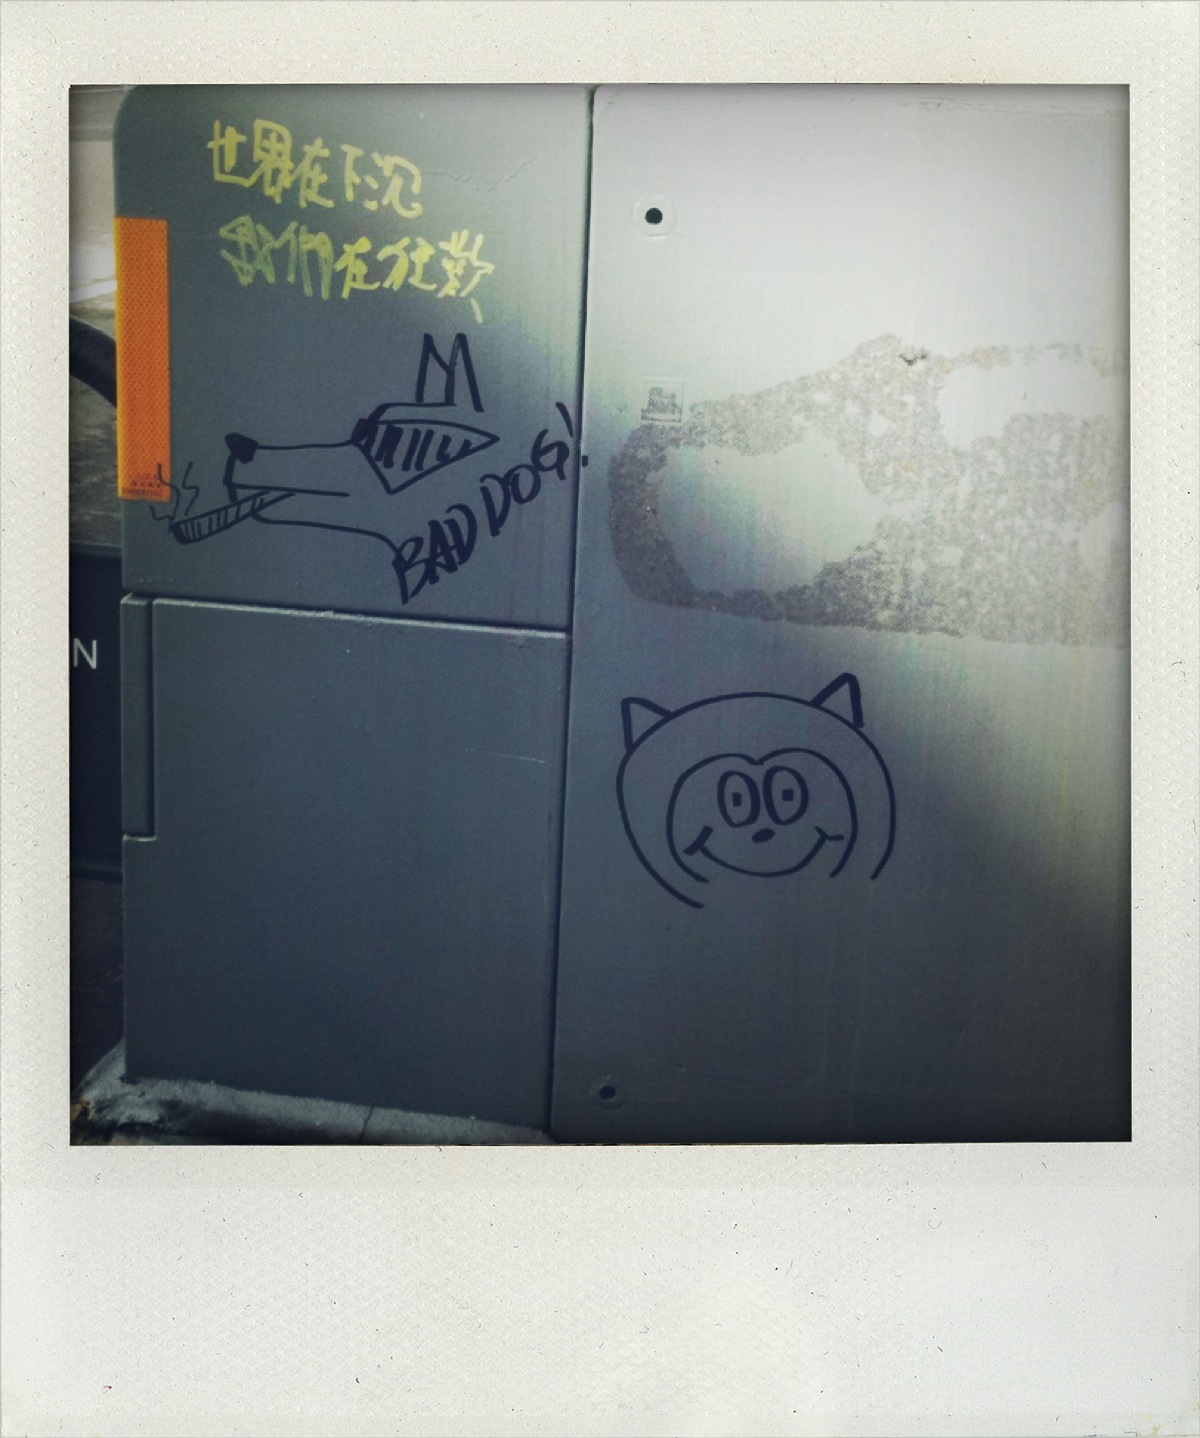 世界在下沉
我們在狂歡
BAD DOG!
N